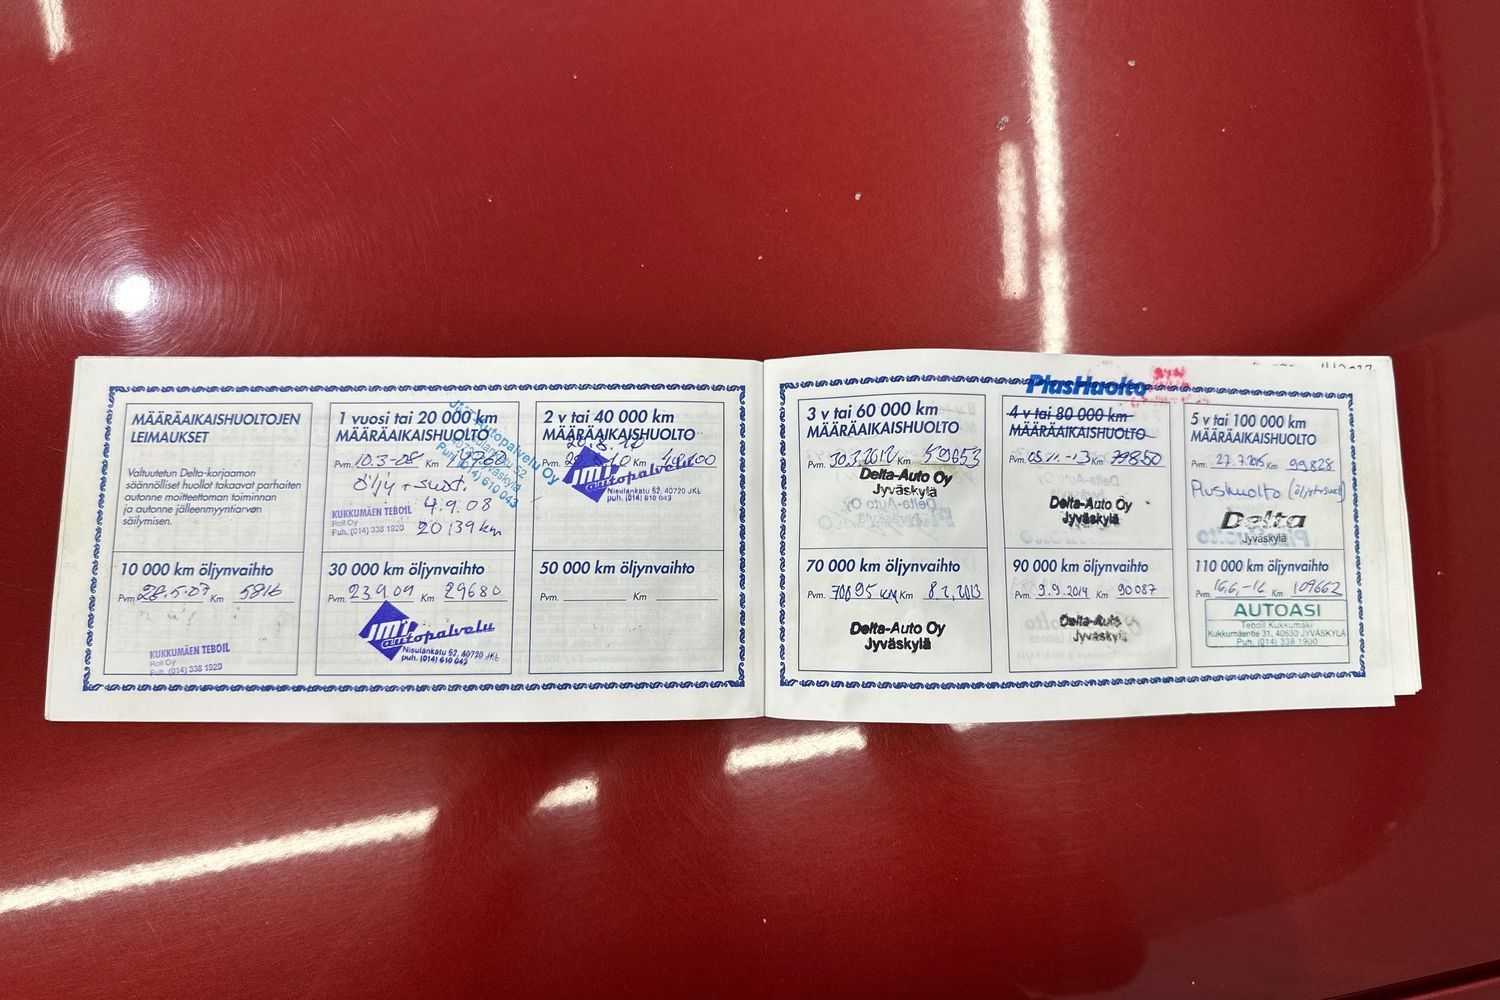 MÄÄRÄAIKAISHUOLTOJEN
LEIMAUKSET
Valtuutetun Delta-korjaamon
säännölliset huollot takaavat parhaiten
autonne moitteettoman toiminnan
ja autonne jälleenmyyntiarvon
säilymisen.
1 vuosi tai 20 000 km
MÄÄRÄAIKAISHUOLTO
Pvm. 10.3-08 Km
öljy + suod.
4.9.08
20139 km
KUKKUMÄEN TEBOIL
Roll Oy
Puh. (014) 338 1920
Autopalvelu Oy
Puh. (014) 610 043
2 v tai 40 000 km
MÄÄRÄAIKAISHUOLTO
Pvm. Km
JMT
autopalvelu
Nisulankatu 52, 40720 JKL
puh. (014) 610 043
10 000 km öljynvaihto
Pvm. 28.5-07 Km 5816
KUKKUMÄEN TEBOIL
Roll Oy
Puh. (014) 338 1920
30 000 km öljynvaihto
Pvm. 23.9.09 Km 29680
JMT
autopalvelu
Nisulankatu 52, 40720 JKL
puh. (014) 610 043
50 000 km öljynvaihto
Pvm. Km
3 v tai 60 000 km
MÄÄRÄAIKAISHUOLTO
Pvm. 30.3.2012 Km 59653
Delta-Auto Oy
Jyväskylä
PlusHuolto
4 v tai 80 000 km
MÄÄRÄAIKAISHUOLTO
Pvm. 05.11.-13 Km 79850
Delta-Auto Oy
Jyväskylä
5 v tai 100 000 km
MÄÄRÄAIKAISHUOLTO
Pvm. 27.7.2015 Km 99828
Plushuolto
Delta
Jyväskylä
70 000 km öljynvaihto
Pvm. 70895 km Km 8 2, 2013
Delta-Auto Oy
Jyväskylä
90 000 km öljynvaihto
Pvm. 9.9.2014 Km 90087
Delta-Auto Oy
Jyväskylä
110 000 km öljynvaihto
Pvm. 16.6.-16 Km 109662
AUTOASI
Teboil Kukkumäki
Kukkumäentie 31, 40630 JYVÄSKYLÄ
Puh. (014) 338 1900